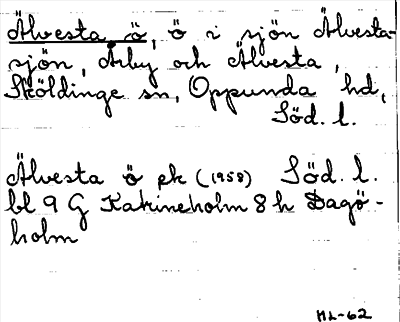 Älvesta ö, ö i sjön Älvesta-
sjön, Åsby och Älvesta,
Sköldinge sn, Oppunda hd,
Söd. l.
Älvesta ö ek (1958) Söd. l.
bl 9 G Katrineholm 8 h Dagö-
holm
ML-62